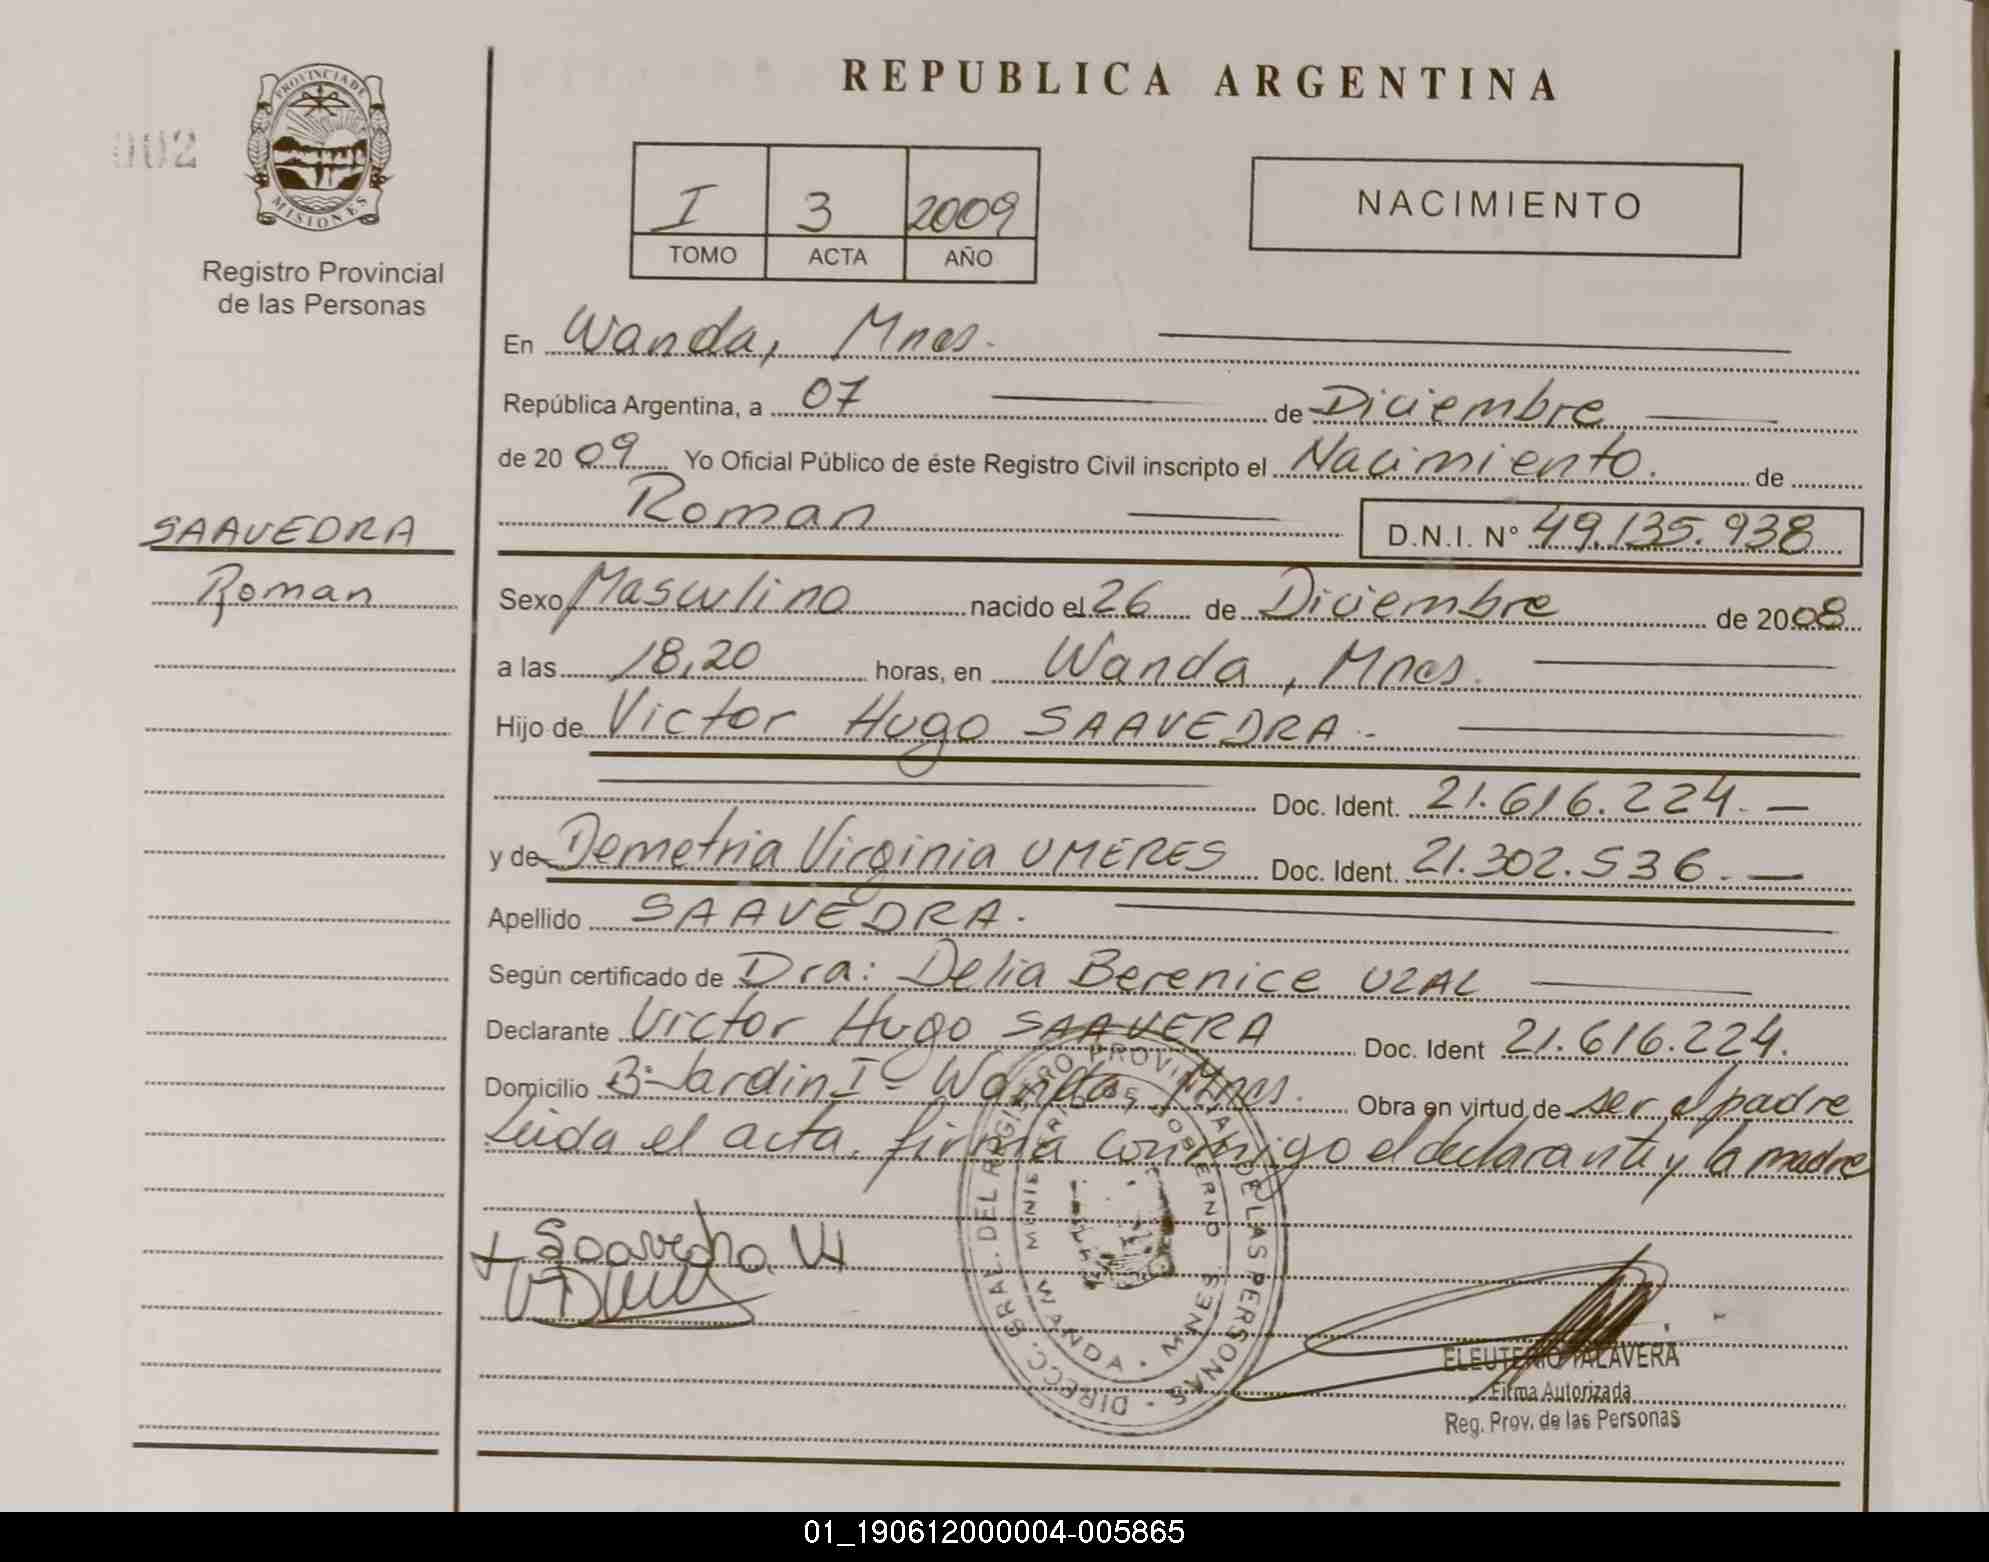 REPUBLICA ARGENTINA
PROVINCIA DE
MISIONES
002
Registro Provincial
de las Personas
I 3 2009
TOMO ACTA AÑO
NACIMIENTO
En Wanda, Mnes.
República Argentina, a 07 de Diciembre
de 20 09 Yo Oficial Público de éste Registro Civil inscripto el Nacimiento. de
Roman D.N.I. N° 49.135.938
SAAVEDRA
Roman
Sexo Masculino nacido el 26 de Diciembre de 2008
a las 18,20 horas, en Wanda, Mnes.
Hijo de Victor Hugo SAAVEDRA.-
Doc. Ident. 21.616.224.-
y de Demetria Virginia UMERES Doc. Ident. 21.302.536.-
Apellido SAAVEDRA.
Según certificado de Dra: Delia Berenice UZAL
Declarante Victor Hugo SAAVERA Doc. Ident 21.616.224.
Domicilio B: Jardin I - Wanda, Mnes. Obra en virtud de ser el padre
Leida el acta, firma conmigo el declarante y la madre
Saavedra VH
DIRECC. GRAL. DEL REGISTRO PROVINCIAL DE LAS PERSONAS
MINISTERIO DE GOBIERNO
WANDA · MNES
ELEUTERIO TALAVERA
Firma Autorizada
Reg. Prov. de las Personas
01_190612000004-005865